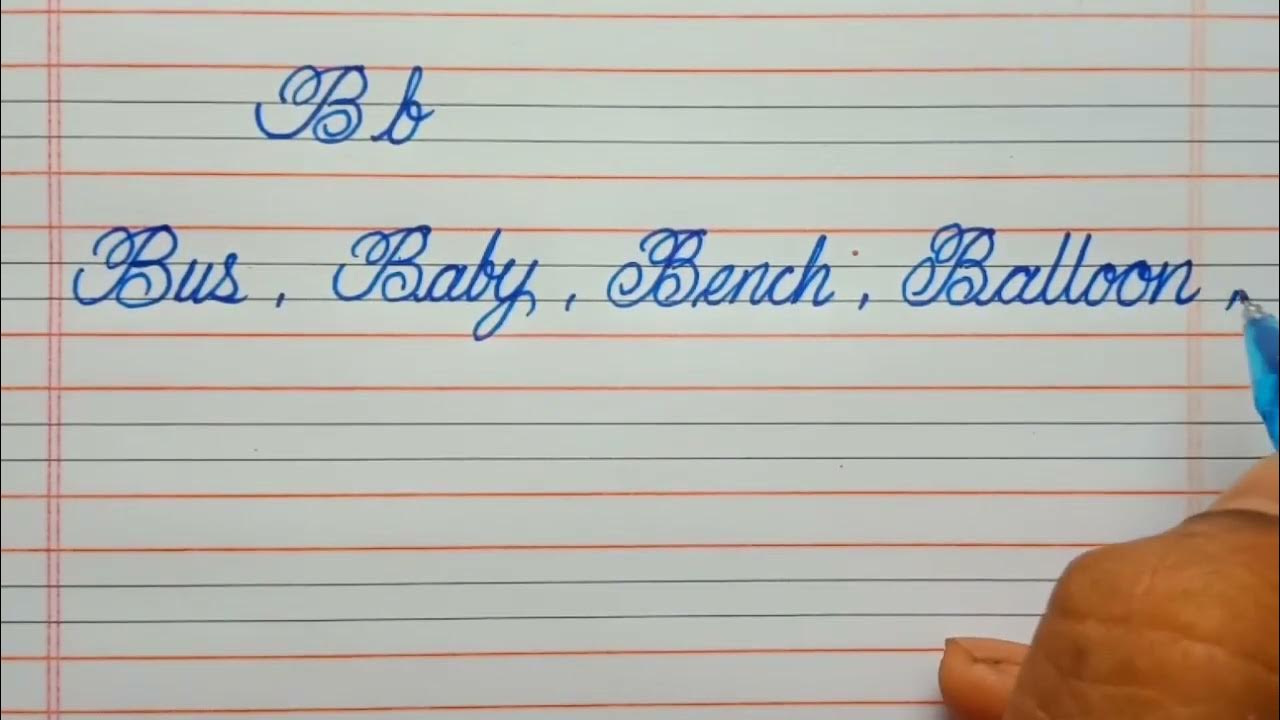 B b
Bus , Baby , Bench , Balloon ,